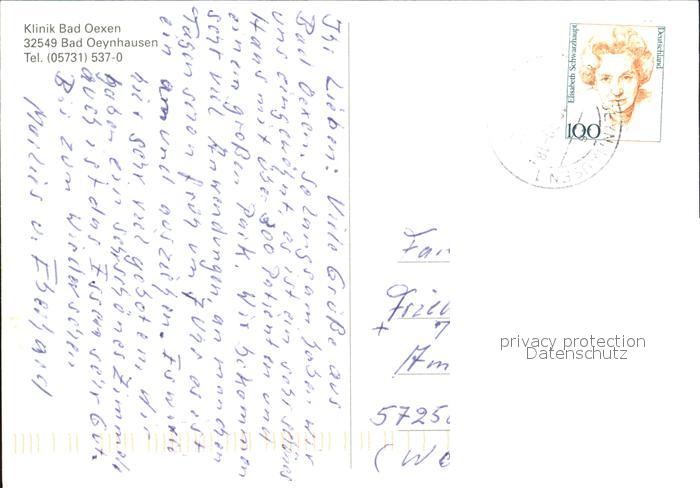 Klinik Bad Oexen
32549 Bad Oeynhausen
Tel. (05731) 537-0
Ihr Lieben! Viele Grüße aus
Bad Oexen. So langsam haben wir
uns eingewöhnt, es ist ein sehr schönes
Haus mit über 300 Patienten und
einem großen Park. Wir bekommen
sehr viel Anwendungen, an manchen
Tagen schon früh um 7 Uhr es ist
ein an und ausziehen. Es wird
hier sehr viel geboten, wir
haben ein sehr schönes Zimmer
auch ist das Essen sehr gut.
Bis zum Wiedersehen
Marlies u. Eberhard
Elisabeth Schwarzhaupt
Deutschland
100
OEYNHAUSEN 1
Fam
Am
5725
(We
privacy protection
Datenschutz